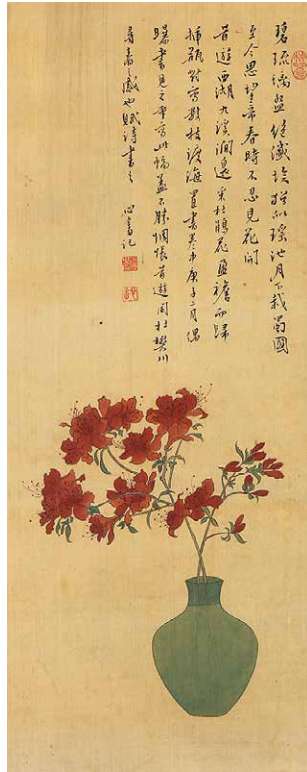 碧琉璃盌絕纖埃猶似瑤池月下栽蜀國
至今思望帝春時不忍見花開
昔遊西湖九溪澗邊采杜鵑花盈襜而歸
插瓶對寫數枝渡海置書笈中庚子二月偶
曝書見之重寫此幅蓋不勝惆悵昔遊同杜樊川
尋春之感也賦詩書之 心畬記